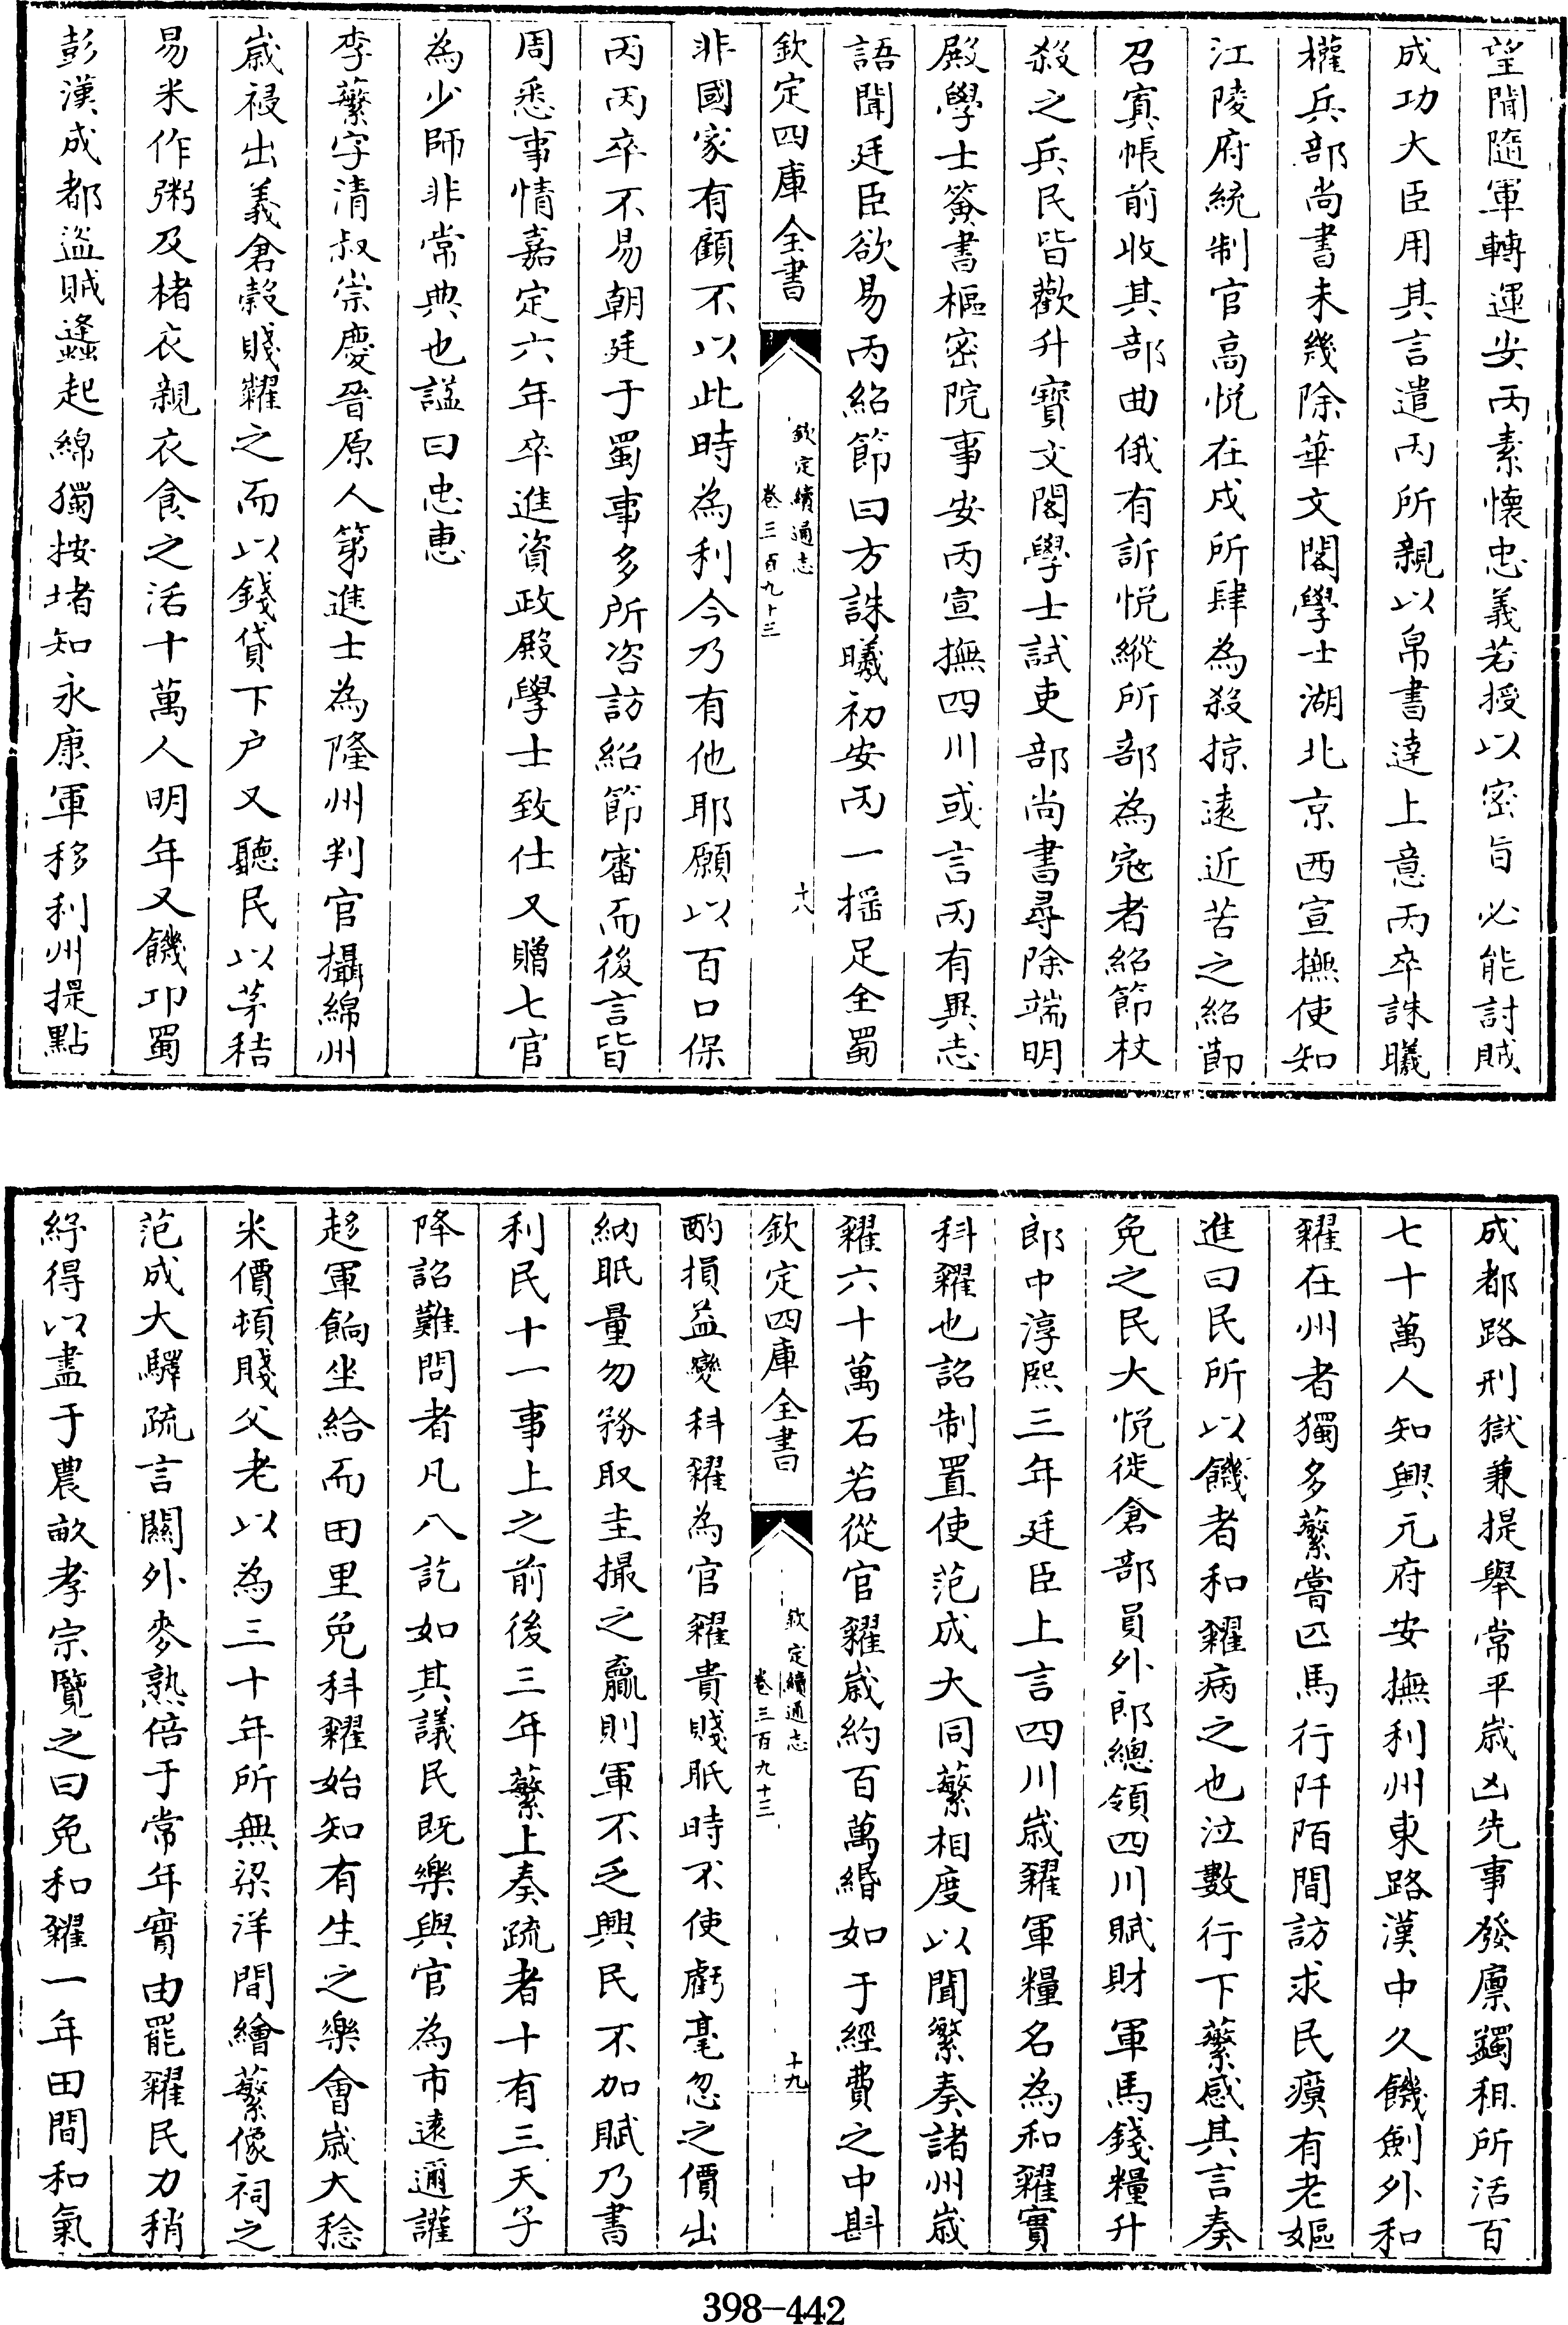 望聞隨軍轉運安丙素懷忠義若授以密旨必能討賊
成功大臣用其言遣丙所親以帛書達上意丙卒誅曦
權兵部尚書未幾除華文閣學士湖北京西宣撫使知
江陵府統制官高悅在戍所肆為殺掠逺近苦之紹節
召寘帳前收其部曲俄有訴悅縱所部為宼者紹節杖
殺之兵民皆歡升寶文閣學士試吏部尚書尋除端明
殿學士簽書樞密院事安丙宣撫四川或言丙有異志
語聞廷臣欲易丙紹節曰方誅曦初安丙一揺足全蜀
欽定四庫全書
欽定續通志
卷三百九十三
十八
非國家有顧不以此時為利今乃有他耶願以百口保
丙丙卒不易朝廷于蜀事多所咨訪紹節審而後言皆
周悉事情嘉定六年卒進資政殿學士致仕又贈七官
為少師非常典也諡曰忠惠
李蘩字清叔崇慶晉原人第進士為隆州判官攝綿州
嵗祲出義倉榖賤糶之而以錢貸下户又聽民以茅秸
易米作粥及楮衣親衣食之活十萬人明年又饑卭蜀
彭漢成都盜賊蠭起綿獨按堵知永康軍移利州提點
成都路刑獄兼提舉常平嵗凶先事發廪蠲租所活百
七十萬人知興元府安撫利州東路漢中久饑劍外和
糴在州者獨多蘩嘗匹馬行阡陌間訪求民瘼有老嫗
進曰民所以饑者和糴病之也泣數行下蘩感其言奏
免之民大悅徙倉部員外郎總領四川賦財軍馬錢糧升
郎中淳熙三年廷臣上言四川嵗糴軍糧名為和糴實
科糴也詔制置使范成大同蘩相度以聞蘩奏諸州嵗
糴六十萬石若從官糴嵗約百萬緡如于經費之中斟
欽定四庫全書
欽定續通志
卷三百九十三
十九
酌損益變科糴為官糴貴賤眡時不使虧毫忽之價出
納眂量勿務取圭撮之贏則軍不乏興民不加賦乃書
利民十一事上之前後三年蘩上奏疏者十有三天子
降詔難問者凡八訖如其議民既樂與官為市逺邇讙
趍軍餉坐給而田里免科糴始知有生之樂會嵗大稔
米價頓賤父老以為三十年所無梁洋間繪蘩像祠之
范成大驛疏言關外麥熟倍于常年實由罷糴民力稍
紓得以盡于農畝孝宗覽之曰免和糴一年田間和氣
398-442